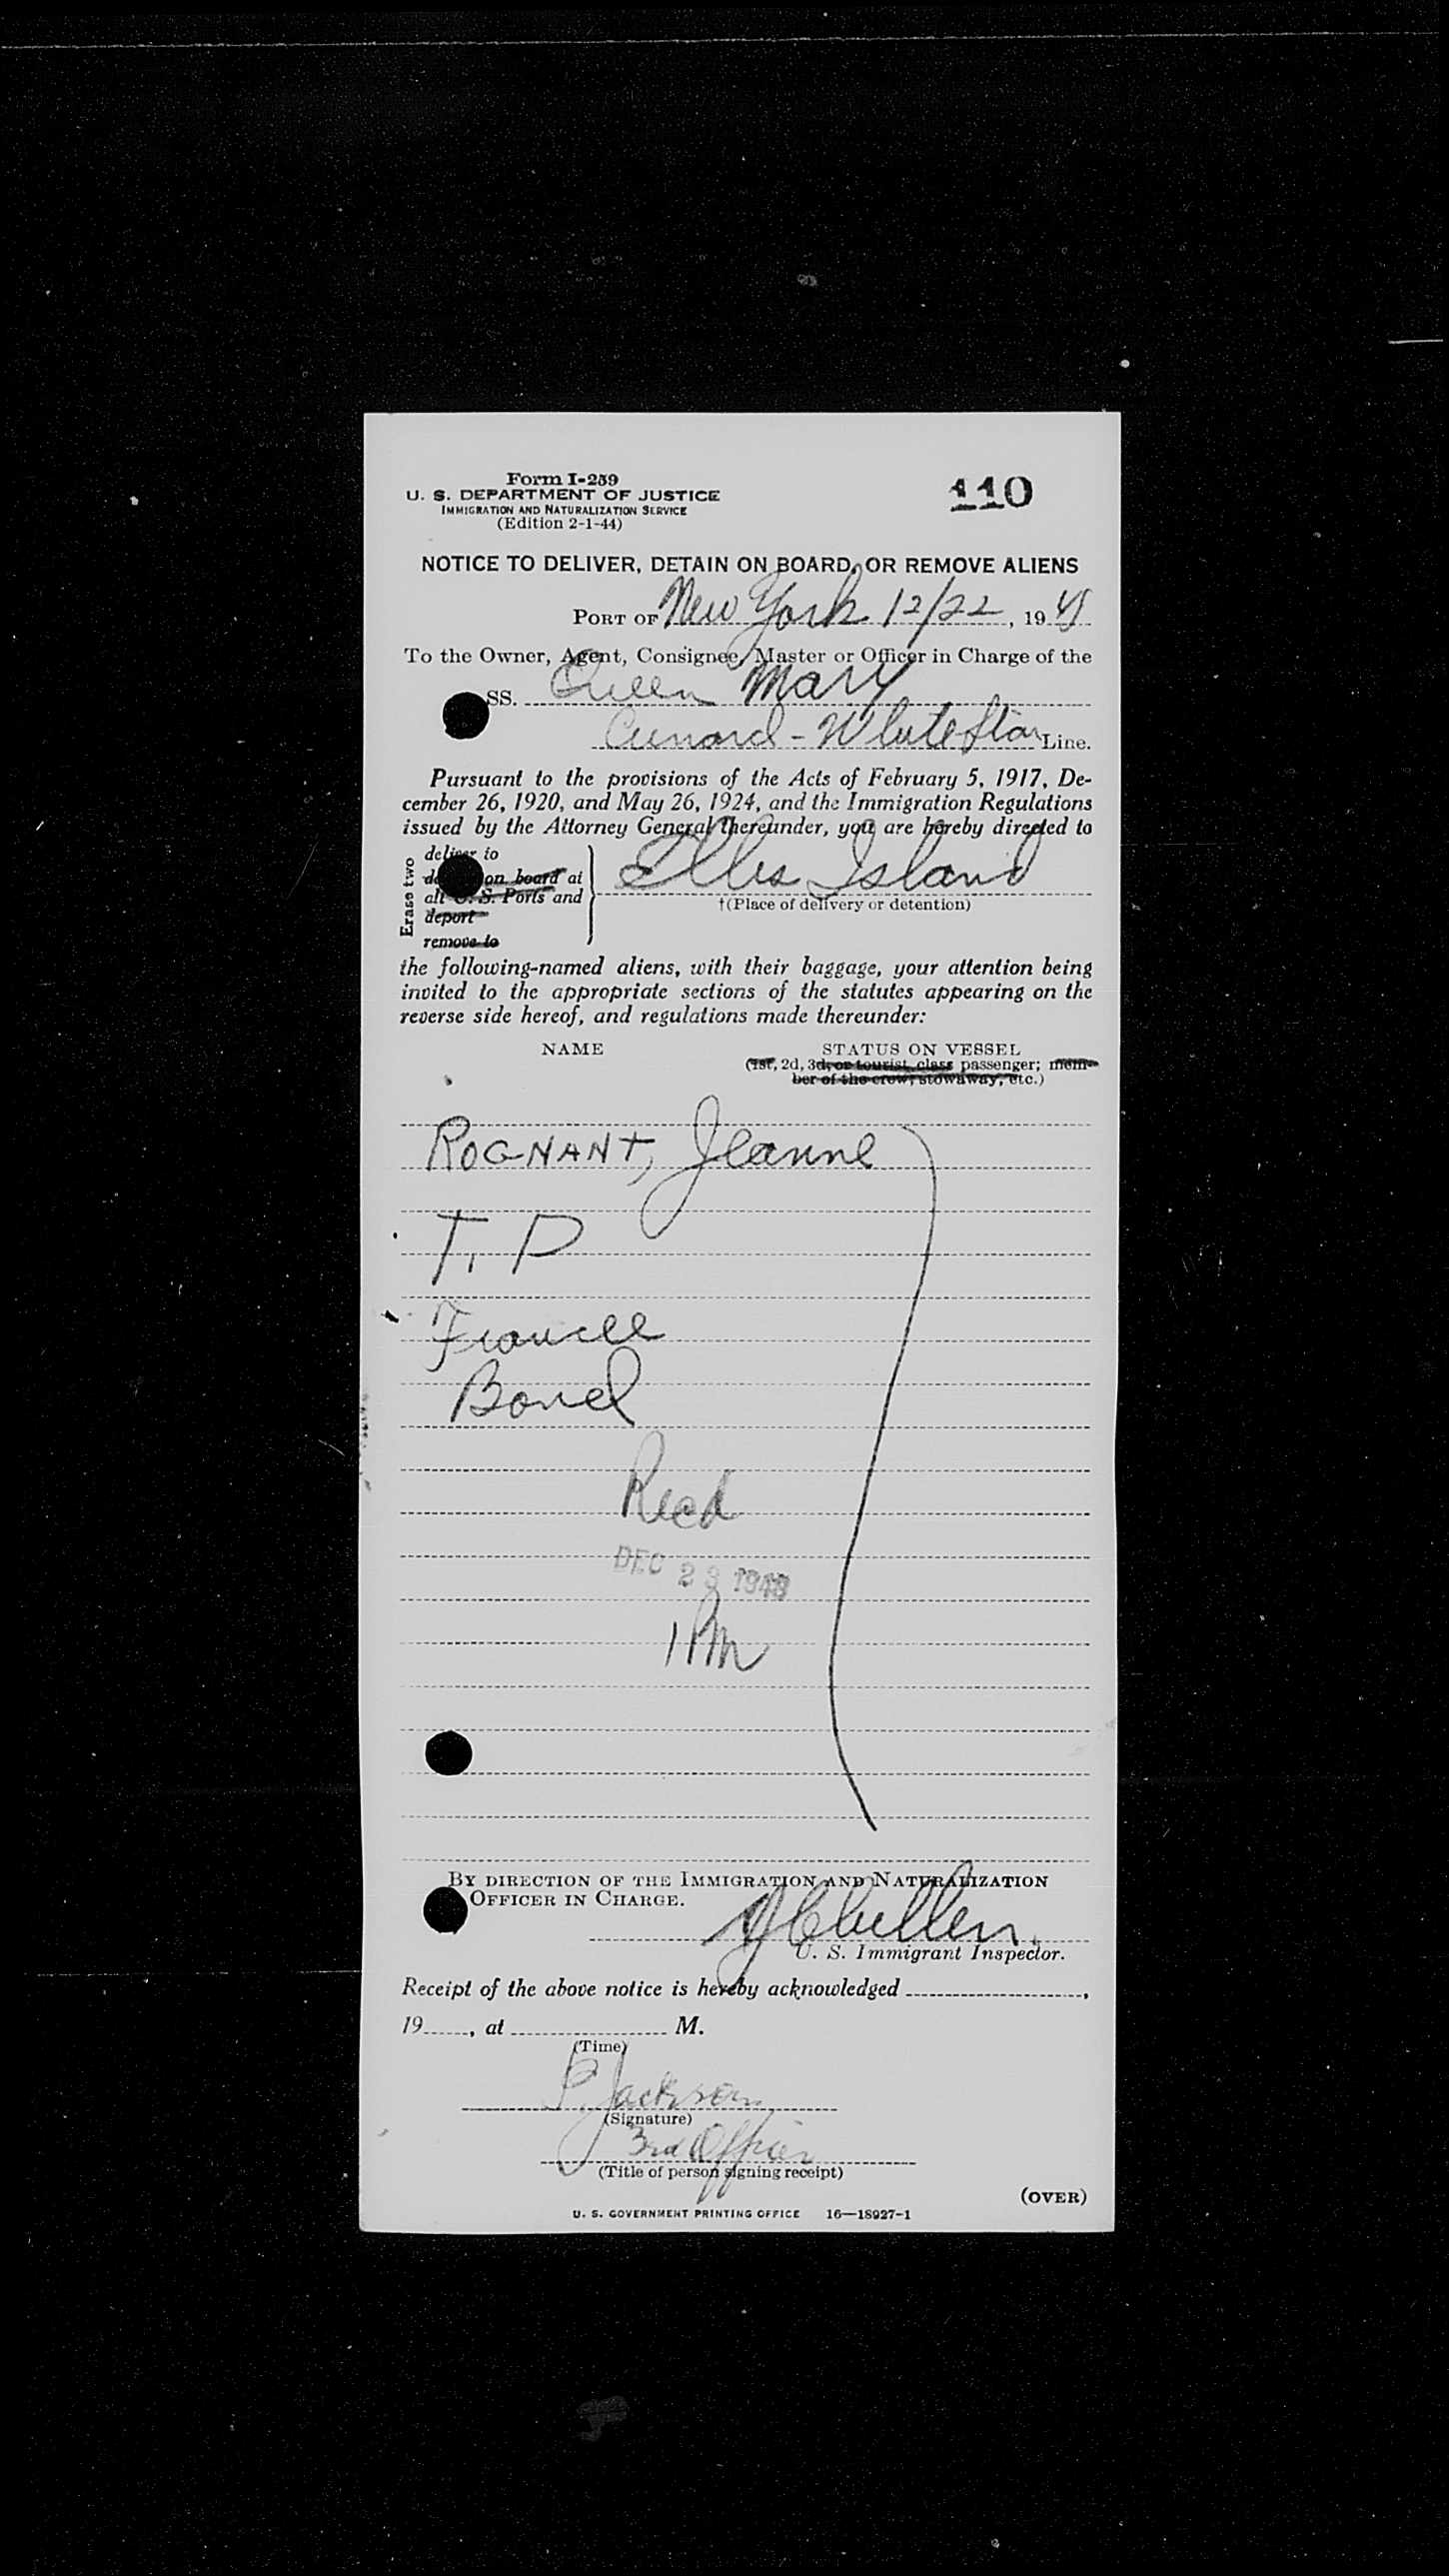 Form I-259
U. S. DEPARTMENT OF JUSTICE
IMMIGRATION AND NATURALIZATION SERVICE
(Edition 2-1-44)
110
NOTICE TO DELIVER, DETAIN ON BOARD, OR REMOVE ALIENS
PORT OF New York 12/22, 19
To the Owner, Agent, Consignee, Master or Officer in Charge of the
SS. Queen Mary
Cunard - White Star Line.
Pursuant to the provisions of the Acts of February 5, 1917, De-
cember 26, 1920, and May 26, 1924, and the Immigration Regulations
issued by the Attorney General thereunder, you are hereby directed to
Erase two
deliver to
on board at
all U. S. Ports and
deport
remove to
Ellis Island
†(Place of delivery or detention)
the following-named aliens, with their baggage, your attention being
invited to the appropriate sections of the statutes appearing on the
reverse side hereof, and regulations made thereunder:
NAME
STATUS ON VESSEL
(1st, 2d, 3d, or tourist class passenger; mem-
ber of the crew, stowaway, etc.)
ROGNANT, Jeanne
T. D
France
Bond
Recd
DEC 23 1948
1 PM
BY DIRECTION OF THE IMMIGRATION AND NATURALIZATION
OFFICER IN CHARGE.
U. S. Immigrant Inspector.
Receipt of the above notice is hereby acknowledged ,
19 , at M.
(Time)
P. Jackson
(Signature)
3rd Officer
(Title of person signing receipt)
(OVER)
U. S. GOVERNMENT PRINTING OFFICE 16—18927-1